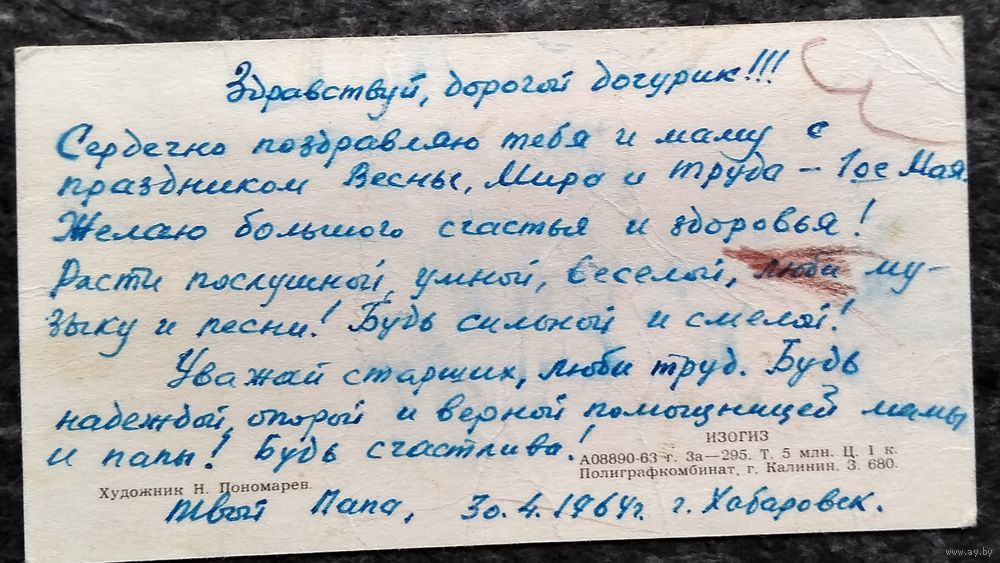 Здравствуй, дорогой дочурик!!!
Сердечно поздравляю тебя и маму с
праздником Весны, Мира и труда – 1ое Мая.
Желаю большого счастья и здоровья!
Расти послушной, умной, веселой, люби му-
зыку и песни! Будь сильной и смелой!
Уважай старших, люби труд. Будь
надеждой, опорой и верной помощницей мамы
и папы! Будь счастлива!
ИЗОГИЗ
А08890-63 г. За—295. Т. 5 млн. Ц. 1 к.
Полиграфкомбинат, г. Калинин. З. 680.
Художник Н. Пономарев.
твой Папа, 30.4.1964г. г. Хабаровск.
www.ay.by